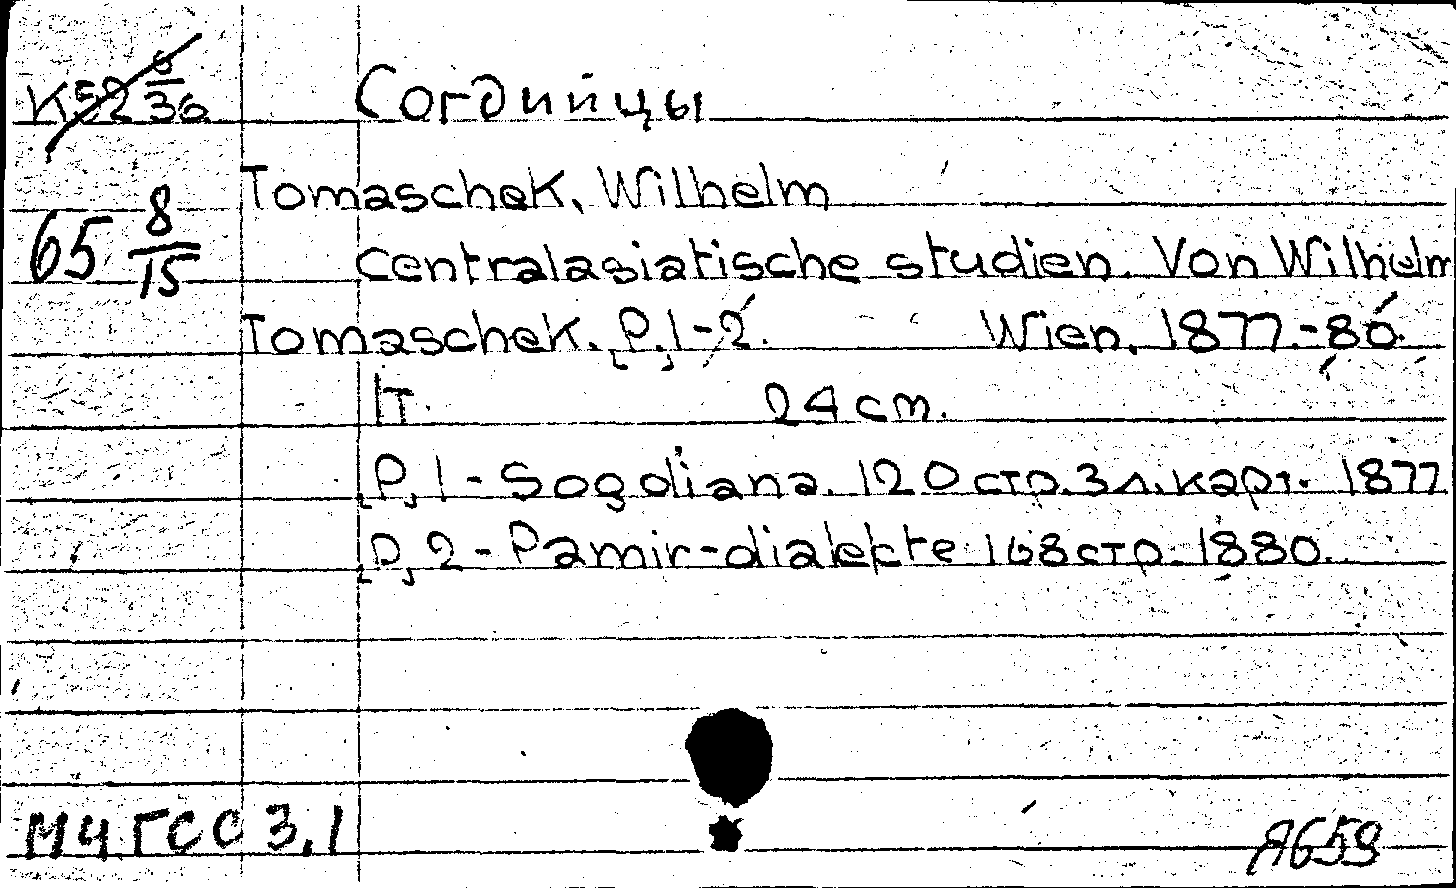 К52 6/36
Согдийцы
65 8/15
Tomaschek, Wilhelm
Centralasiatische studien. Von Wilhelm
Tomaschek. [P.] 1-2. Wien, 1877.-80.
1т. 24 cm.
[P.] 1 - Sogdiana. 120 стр. 3 л. карт. 1877
[P.] 2 - Pamir-dialekte 168 стр. 1880.
МЧ ГСС 3.1
Я659